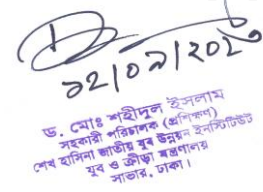 ১২/০৯/২০২৩
ড. মোঃ শহীদুল ইসলাম
সহকারী পরিচালক (প্রশিক্ষণ)
শেখ হাসিনা জাতীয় যুব উন্নয়ন ইনস্টিটিউট
যুব ও ক্রীড়া মন্ত্রণালয়
সাভার, ঢাকা।